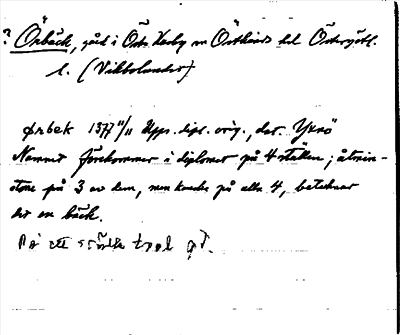 ? Örbäck, gård i Östra Karby sn Östkinds hd Östergötl.
l. (Vikbolandet)
Ørbek 1377 11/11 Upps. dipl. orig., dat. Yxnö
Namnet förekommer i diplomet på 4 ställen; åtmin-
stone på 3 av dem, men kanske på alla 4, betecknar
det en bäck.
På ett ställe trol. gd.